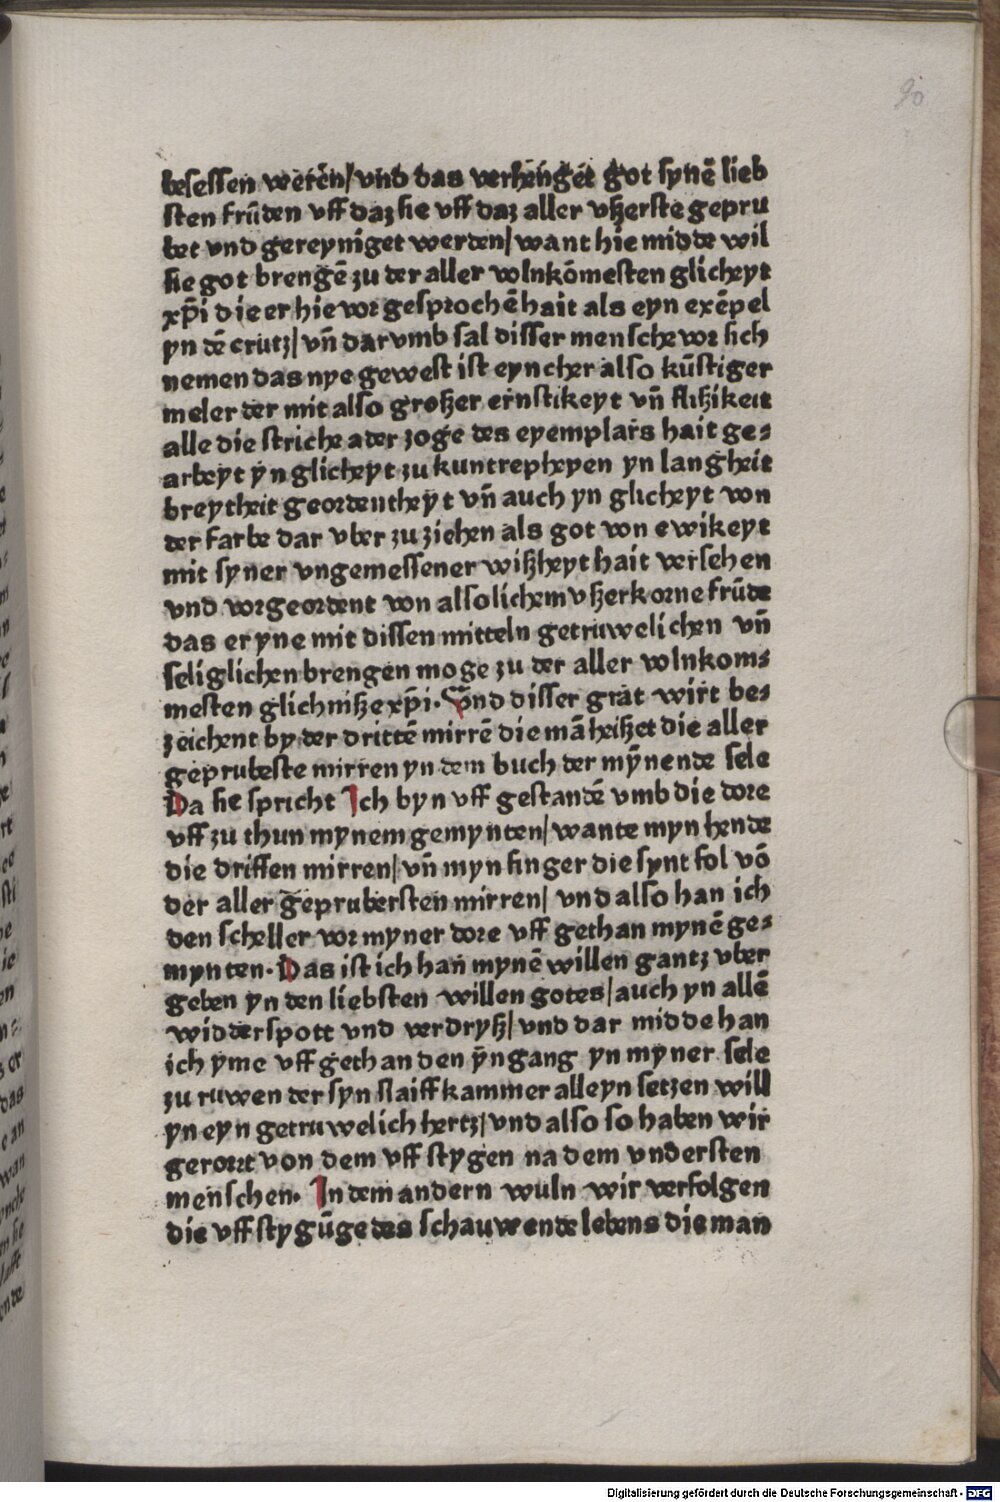 90
beſeſſen werẽn/vnd das verhenget got ſynẽ lieb
ſten frũden vff daz ſie vff daz aller vßerſte gepru
bet vnd gereyniget werden/want hie midde wil
ſie got brengẽ zu der aller volnkõmeſten glicheyt
xp̃i die er hie vor geſprochẽ hait als eyn exẽpel
yn dẽ crutz/vñ dar vmb ſal diſſer menſche vor ſich
nemen das nye geweſt iſt eyncher alſo kũſtiger
meler der mit alſo großer ernſtikeyt vñ flißikeit
alle die ſtriche ader zoge des eyemplars hait ge⸗
arbeyt yn glicheyt zu kuntrepheyen yn langheit
breytheit geordentheyt vñ auch yn glicheyt von
der farbe dar vber zu ziehen als got von ewikeyt
mit ſyner vngemeſſener wißheyt hait verſehen
vnd vorgeordent von alſolichem vßerkorne frũde
das er yne mit diſſen mitteln getruwelichen vñ
ſeliglichen brengen moge zu der aller volnkom⸗
meſten glichniße xp̃i. Vnd diſſer grät wirt be⸗
zeichent by der drittẽ mirrẽ die mã heißet die aller
geprubeſte mirren yn dem buch der mỹnende ſele
Da ſie ſpricht Ich byn vff geſtandẽ vmb die dore
vff zu thun mynem gemynten/wante myn hende
die driffen mirren/vñ myn finger die ſynt fol võ
der aller geprubersten mirren/ vnd alſo han ich
den ſcheller vor myner dore vff gethan mynẽ ge⸗
mynten. Das iſt ich han mynẽ willen gantz vber
geben yn den liebſten willen gotes/auch yn allẽ
widderſpott vnd verdryß/vnd dar midde han
ich ỹme vff gethan den ỹngang yn myner ſele
zu ruwen der ſyn ſlaiffkammer alleyn ſetzen will
yn eyn getruwelich hertz/vnd alſo ſo haben wir
gerorrt von dem vff ſtygen na dem vnderſten
menſchen. In dem andern wuln wir verfolgen
die vff ſtygũge des ſchauwende lebens die man
Digitalisierung gefördert durch die Deutsche Forschungsgemeinschaft - DFG